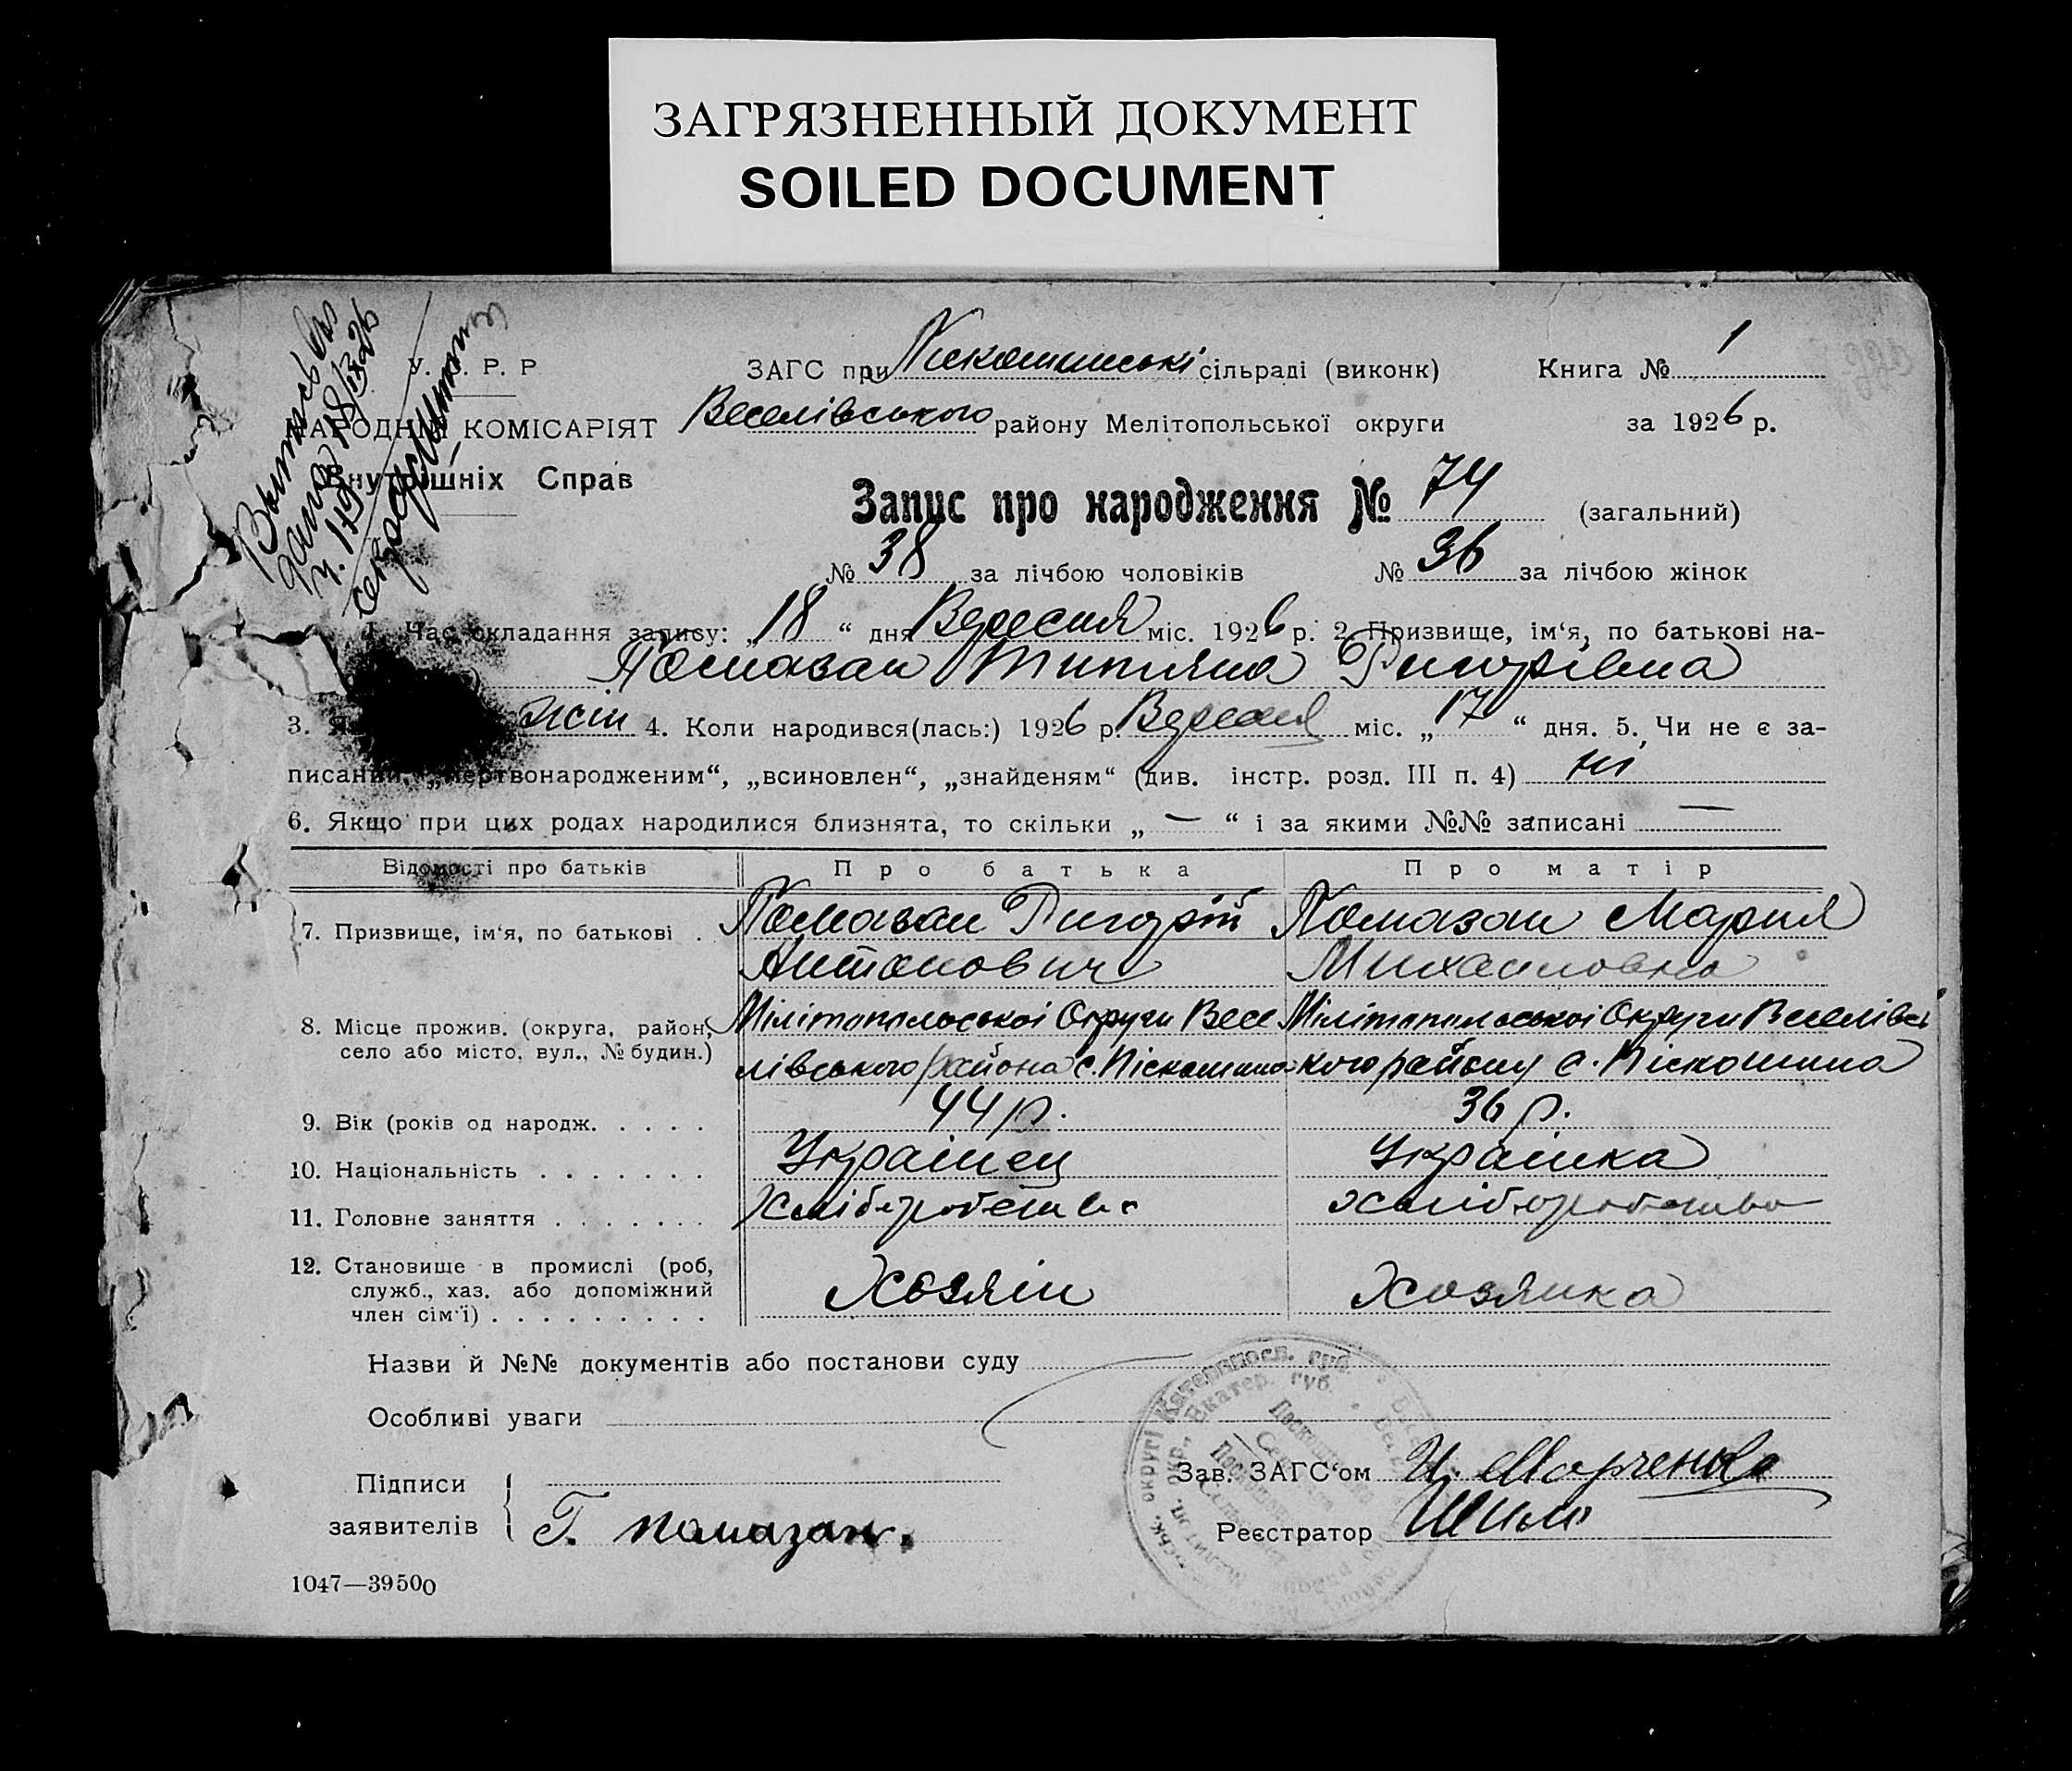 ЗАГРЯЗНЕННЫЙ ДОКУМЕНТ
SOILED DOCUMENT
У. Р. Р
ЗАГС при сільраді (виконк) Книга № 1
НАРОДНИЙ КОМІСАРІЯТ Веселівського району Мелітопольської округи за 1926 р.
Внутрішніх Справ
Запис про народження № 74 (загальний)
№ 38 за лічбою чоловіків № 36 за лічбою жінок
1. Час складання запису: „18“ дня Вересня міс. 1926 р. 2. Призвище, ім‘я, по батькові на-
Помазан Титяна Григорівна
3. жін 4. Коли народився(лась:) 1926 р. Вересня міс. „17“ дня. 5. Чи не є за-
писаний, „мертвонародженим“, „всиновлен“, „знайденям“ (див. інстр. розд. III п. 4) ні
6. Якщо при цих родах народилися близнята, то скільки „ — “ і за якими №№ записані —
Відомості про батьків Про батька Про матір
7. Призвище, ім‘я, по батькові . Помазан Григорій Помазан Мария
Антонович Михаиловна
8. Місце прожив. (округа, район, Мілітопольської Округи Весе Мілітопольської Округи Веселівсь
село або місто, вул., № будин.) лівського района с. Піскошино кого району с. Піскошина
9. Вік (років од народж. . . . . 44 р. 36 р.
10. Національність . . . . . . . Українец Українка
11. Головне заняття . . . . . . . Хліборобство хліборобство
12. Становище в промислі (роб,
служб., хаз. або допоміжний Хозяін Хозяика
член сім‘ї) . . . . . . . . .
Назви й №№ документів або постанови суду
Особливі уваги
Підписи Зав. ЗАГС‘ом И. Марченко
заявителів Г. помазан. Реєстратор
1047—39500